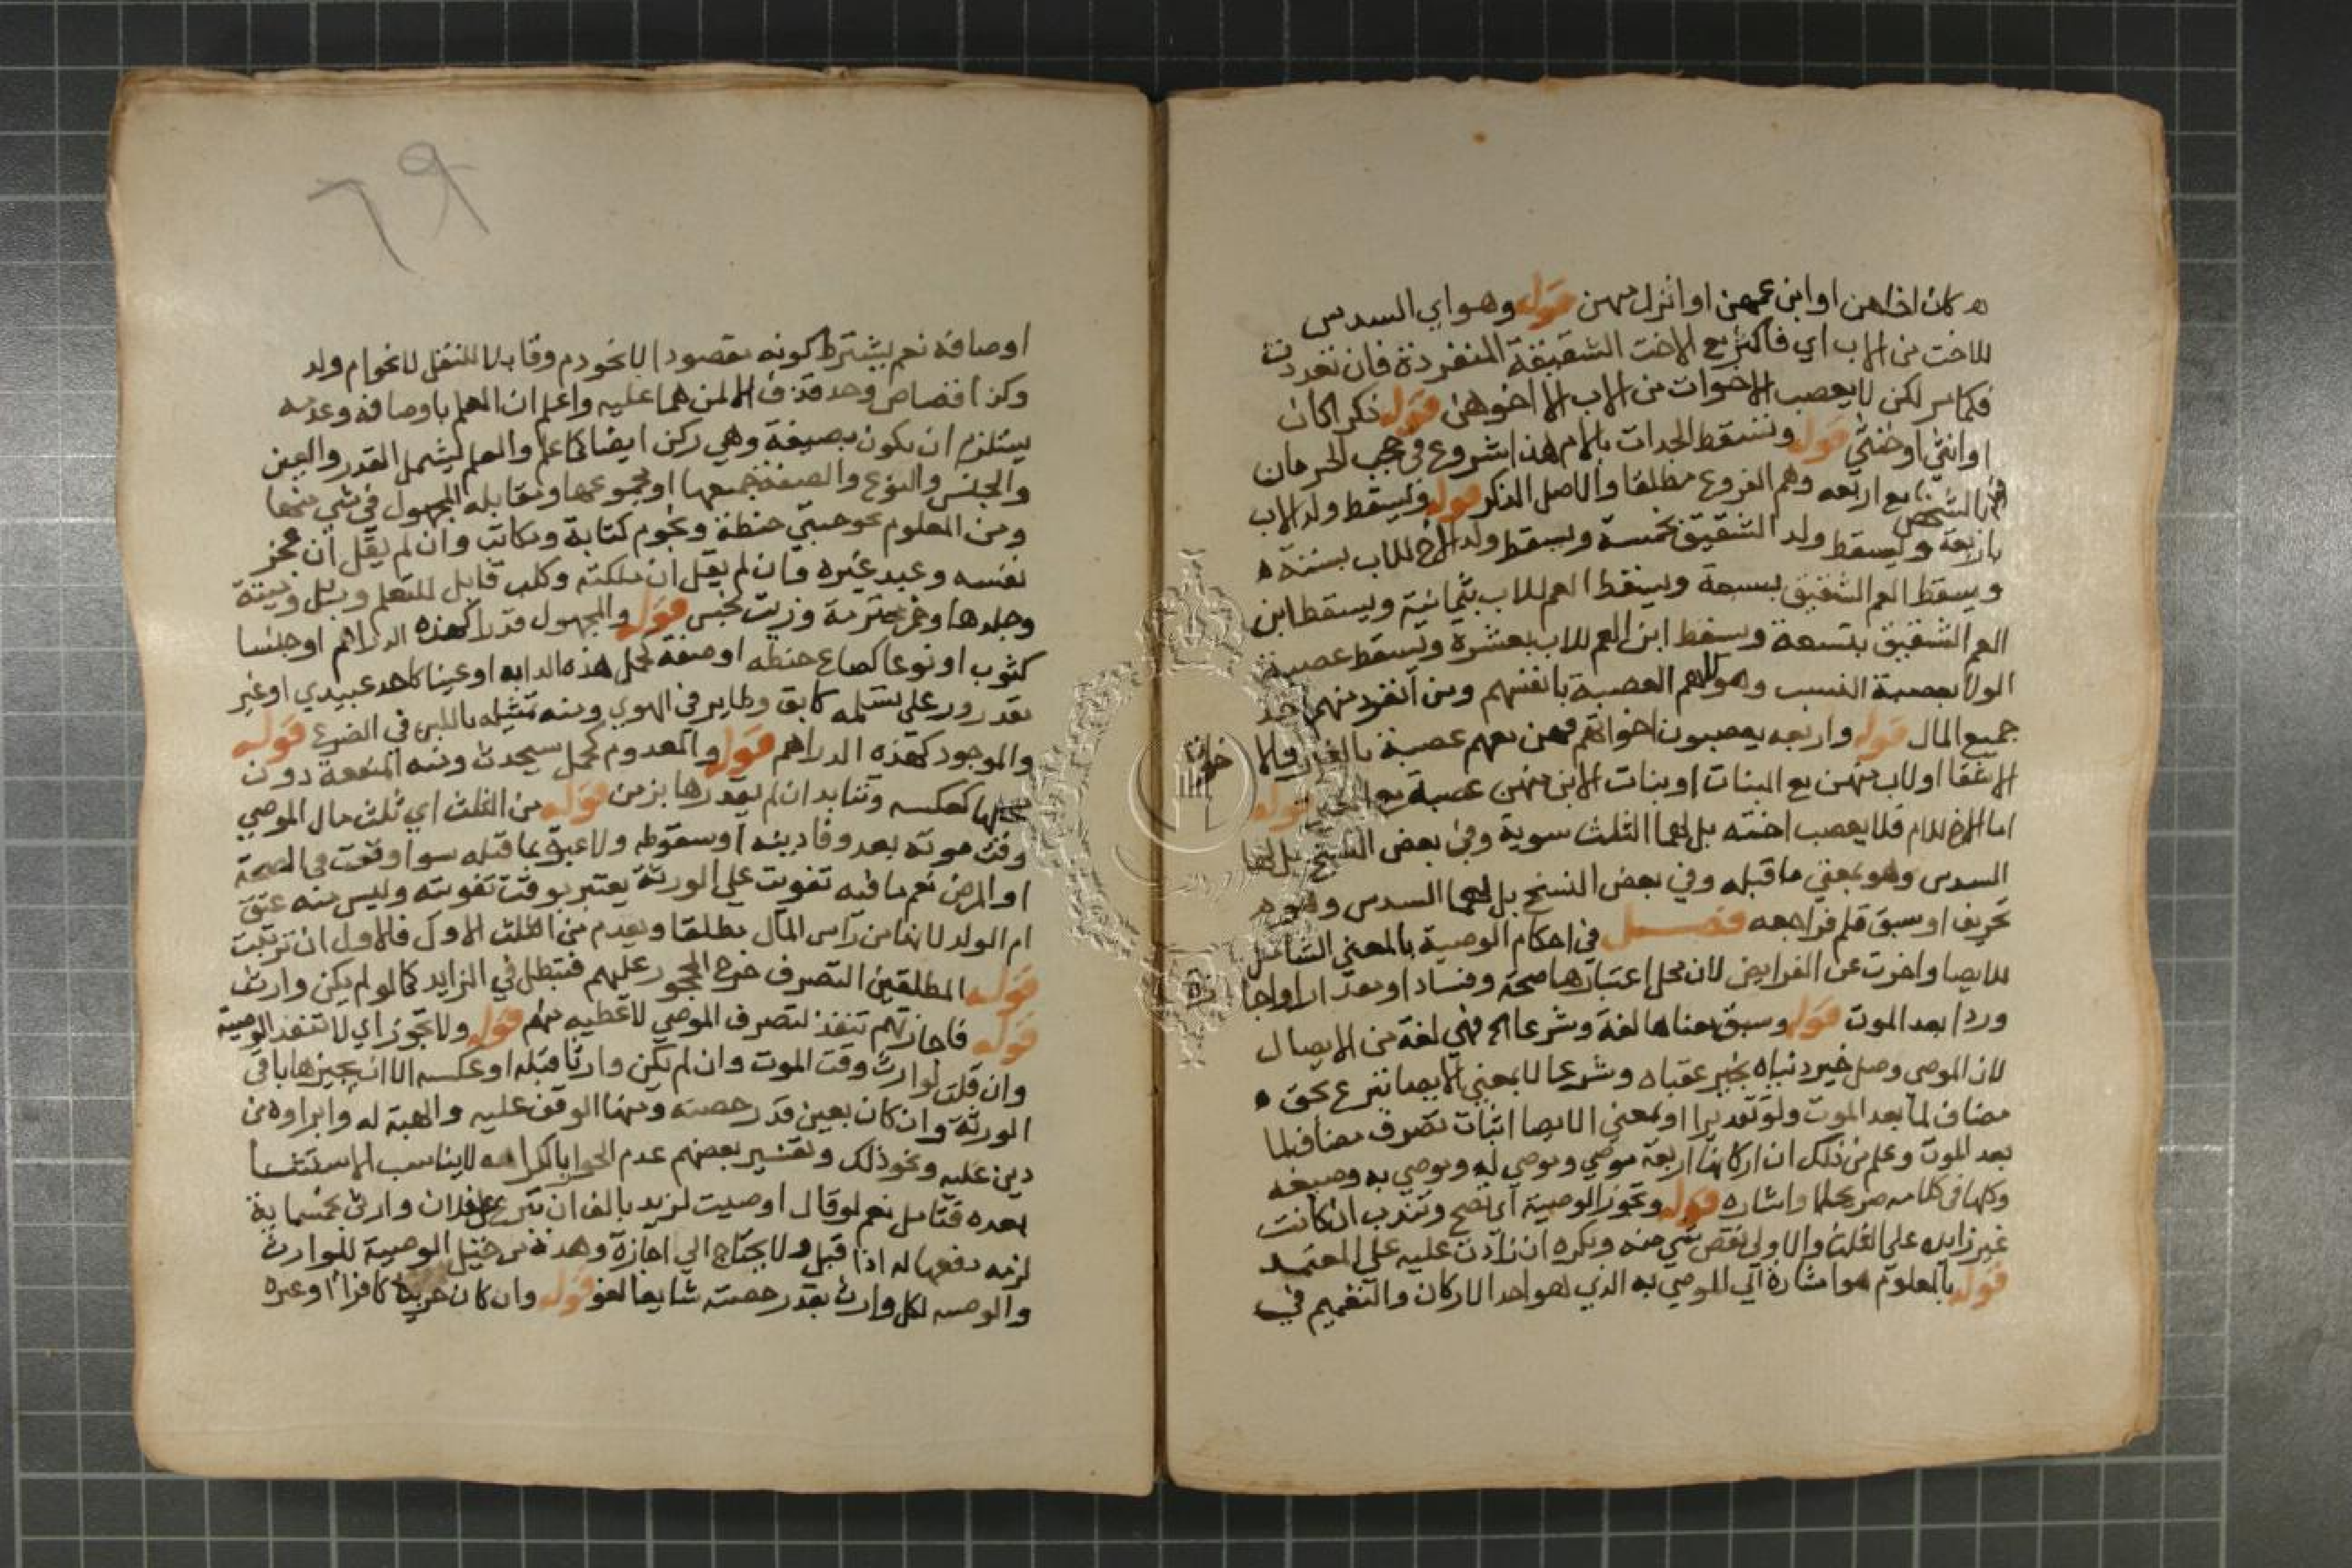 كان اخاهن او ابن عمهن او انزل منهن قوله وهو اي السدس
للاخت من الاب اي فاكثر مع الاخت الشقيقة المنفردة فان تعددت
فكما مر لكن لا يعصب الاخوات من الاب الا اخوهن قوله ذكرا كان
او انثي او خنثي قوله وتسقط الجدات بالام هذا شروع في حجب الحرمان
بالشخص مع اربعه وهم الفروع مطلقا والاصل الذكر قوله ويسقط ولد الاب
باربعة ويسقط ولد الشقيق بخمسة ويسقط ولد الاخ للاب بستة
ويسقط العم الشقيق بسبعة ويسقط العم للاب بثمانية ويسقط ابن
العم الشقيق بتسعة ويسقط ابن العم للاب بعشرة ويسقط عصبة
الولا بعصبة النسب وهولاهم العصبة بانفسهم ومن انفرد منهم اخذ
جميع المال قوله واربعه يعصبون اخواتهم فهن معهم عصبة بالغير والاخوات
الاشقا او لاب منهن مع البنات او بنات الابن منهن عصبة مع الغير قوله
اما الاخ للام فلا يعصب اخته بل لهما الثلث سوية وفي بعض النسخ بل لهما
السدس وهو بمعني ما قبله وفي بعض النسخ بل لهما السدس وهو
تحريف او سبق قلم فراجعه فصل في احكام الوصية بالمعني الشامل
للايصا واخرت عن الفرايض لان محل اعتبارها صحة وفسادا ومقدارا واجازة
وردا بعد الموت قوله وسبق معناها لغة وشرعا الخ فهي لغة من الايصال
لان الموصي وصل خير دنياه بخير عقباه وشرعا لا بمعني الايصا تبرع بحق
مضاف لما بعد الموت ولو تقديرا او بمعني الايصا اثبات تصرف مضاف لما
بعد الموت وعلم من ذلك ان اركانها اربعة موصي وموصي له وموصي به وصيغه
وكلها في كلامه صريحا واشاره قوله وتجوز الوصية اي تصح وتندب ان كانت
غير زايده علي الثلث والاولي نقص شي منه ويكره ان زادت عليه علي المعتمد
قوله بالمعلوم هو اشارة الي الموصي به الذي هو احد الاركان والتعميم في
٦٩
اوصافه نعم يشترط كونه مقصودا لا نحو دم وقابلا للنقل لا نحو ام ولد
وكذا قصاص وحد قذف الا لمن هما عليه واعلم ان العلم باوصافه وعدمه
يستلزم ان يكون بصيغة وهي ركن ايضا كما علم والعلم ليشمل القدر والعين
والجنس والنوع والصفة جميعها او مجموعها ومقابله المجهول في شي منها
ومن المعلوم نحو حبتي حنطة ونجوم كتابة ومكاتب وان لم يقل ان عجز
نفسه وعبد غيره وان لم يقل ان ملكته وكلب قابل للتعلم وزبل وميتة
وجلدها وخمر محترمة وزيت نجس قوله والمجهول قدرا كهذه الدراهم او جنسا
كثوب او نوعا كصاع حنطه او صفة كحمل هذه الدابه او عينا كاحد عبيدي او غير
مقدور علي تسلمه كابق وطاير في الهوي ومنه تمثيله باللبن في الضرع قوله
والموجود كهذه الدراهم قوله والمعدوم كحمل سيحدث ومنه المنفعة دون
عينها كعكسه وتتابد ان لم يقدرها بزمن قوله من الثلث اي ثلث مال الموصي
وقت موته بعد وفا دينه او سقوطه ولا عبرة بما قبله سوا وقعت في الصحة
او المرض نعم ما فيه تفويت علي الورثة يعتبر بوقت تفويته وليس منه عتق
ام الولد لانها من راس المال مطلقا ويقدم من الثلث الاول فالاول ان ترتبت
قوله المطلقين التصرف خرج المحجور عليهم فتبطل في الزايد كما لو لم يكن وارث
قوله فاجازتهم تنفيذ لتصرف الموصي لا عطيه منهم قوله ولا تجوز اي لا تنفذ الوصية
وان قلت لوارث وقت الموت وان لم يكن وارثا قبله او عكسه الا ان يجيزها باقي
الورثة وان كان بعين قدر حصته ومنها الوقف عليه والهبة له وابراوه من
دين عليه ونحو ذلك وتفسير بعضهم عدم الجواز بالكراهه لا يناسب الاستثنا
بعده فتامل نعم لو قال اوصيت لزيد بالف ان تبرع علي فلان وارثي بخمسماية
لزمه دفعها له اذا قبل ولا يحتاج الي اجازة وهذه من حيل الوصية للوارث
والوصيه لكل وارث بقدر حصته شايعا لغو قوله وان كان حربيا كافرا او غيره